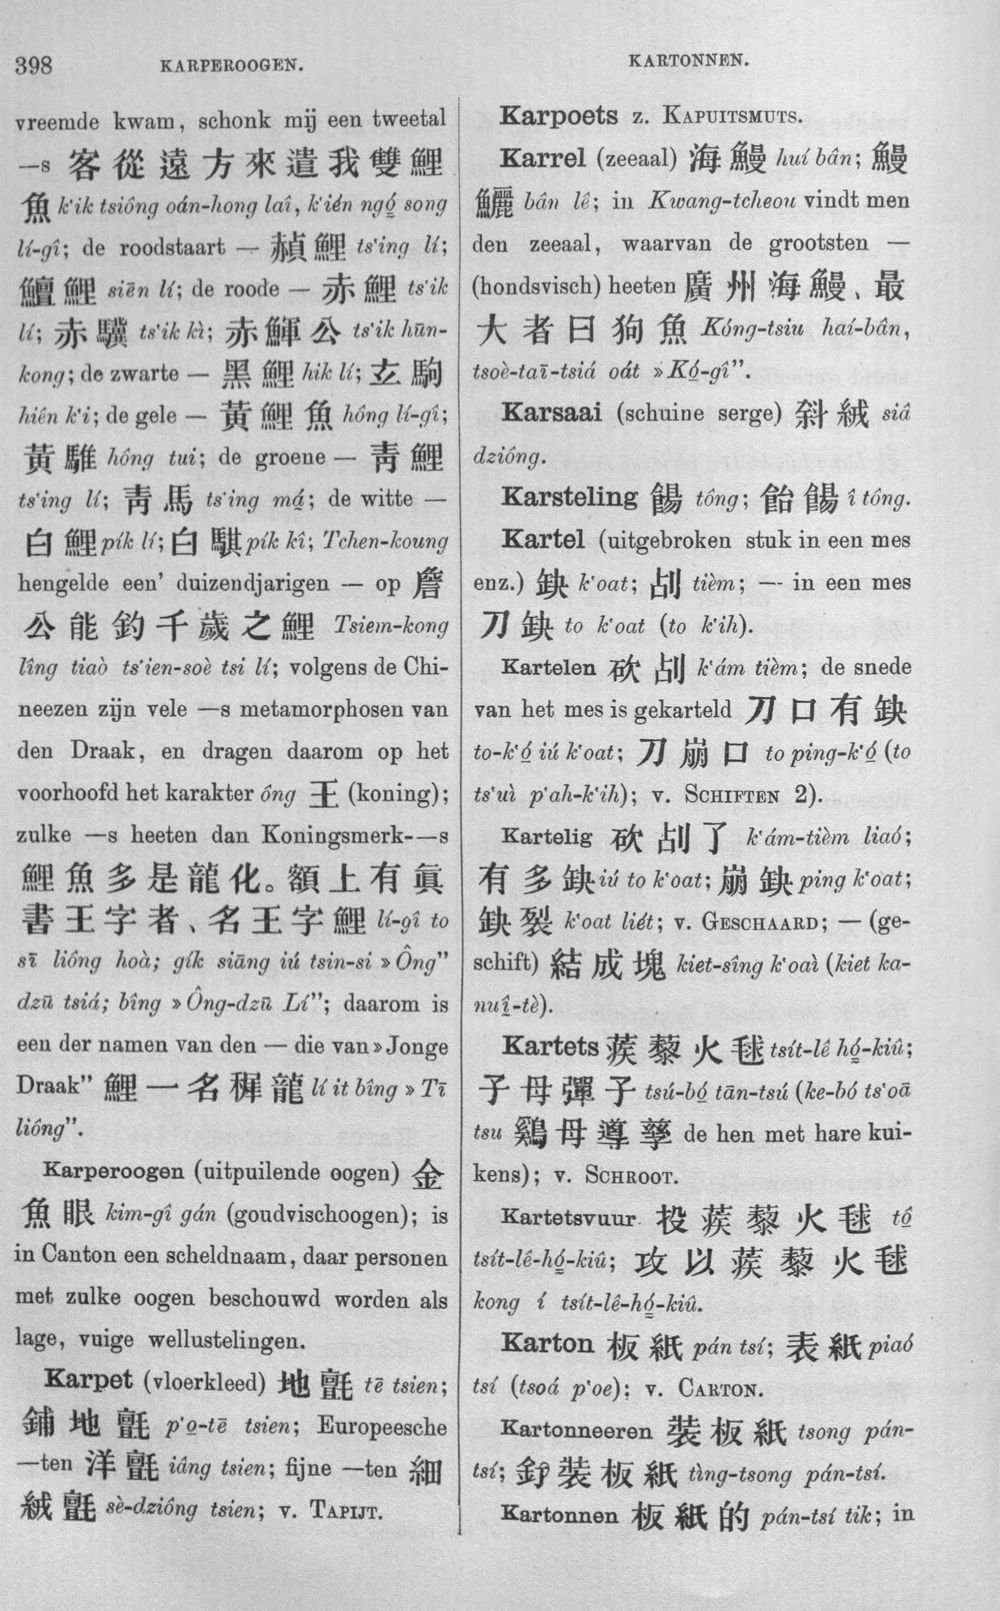 398
KARPEROOGEN.
KARTONNEN.
vreemde kwam, schonk mij een tweetal
—s 客從遠方來遣我雙鯉
魚 k'ik tsiông oán-hong laî, k'ién ngó̤ song
lí-gî; de roodstaart — 赬鯉 ts'ing lí;
鱣鯉 siēn lí; de roode — 赤鯉 ts'ik
lí; 赤驥 ts'ik kì; 赤鯶公 ts'ik hūn-
kong; de zwarte — 黑鯉 hik lí; 玄駒
hiên k'i; de gele — 黃鯉魚 hông lí-gî;
黃騅 hông tui; de groene — 靑鯉
ts'ing lí; 靑馬 ts'ing má̤; de witte —
白鯉 pík lí; 白騏 pík kî; Tchen-koung
hengelde een' duizendjarigen — op 詹
公能釣千歲之鯉 Tsiem-kong
lîng tiaò ts'ien-soè tsi lí; volgens de Chi-
neezen zijn vele —s metamorphosen van
den Draak, en dragen daarom op het
voorhoofd het karakter ông 王 (koning);
zulke —s heeten dan Koningsmerk-—s
鯉魚多是龍化。額上有眞
書王字者、名王字鯉 lí-gî to
sī liông hoà; gík siāng iú tsin-si »Ông”
dzū tsiá; bîng »Ông-dzū Lí”; daarom is
een der namen van den — die van »Jonge
Draak” 鯉一名穉龍 lí it bîng »Tī
liông”.
Karperoogen (uitpuilende oogen) 金
魚眼 kim-gî gán (goudvischoogen); is
in Canton een scheldnaam, daar personen
met zulke oogen beschouwd worden als
lage, vuige wellustelingen.
Karpet (vloerkleed) 地氈 tē tsien;
鋪地氈 p'o̤-tē tsien; Europeesche
—ten 洋氈 iâng tsien; fijne —ten 細
絨氈 sè-dziông tsien; v. TAPIJT.
Karpoets z. KAPUITSMUTS.
Karrel (zeeaal) 海鰻 huí bân; 鰻
鱺 bân lê; in Kwang-tcheou vindt men
den zeeaal, waarvan de grootsten —
(hondsvisch) heeten 廣州海鰻、最
大者曰狗魚 Kóng-tsiu haí-bân,
tsoè-taī-tsiá oát »Kó̤-gî”.
Karsaai (schuine serge) 斜絨 siâ
dziông.
Karsteling 餳 tông; 飴餳 î tông.
Kartel (uitgebroken stuk in een mes
enz.) 缺 k'oat; 㓠 tièm; — in een mes
刀缺 to k'oat (to k'ih).
Kartelen 砍㓠 k'ám tièm; de snede
van het mes is gekarteld 刀口有缺
to-k'ó̤ iú k'oat; 刀崩口 to ping-k'ó̤ (to
ts'uì p'ah-k'ih); v. SCHIFTEN 2).
Kartelig 砍㓠了 k'ám-tièm liaó;
有多缺 iú to k'oat; 崩缺 ping k'oat;
缺裂 k'oat liét; v. GESCHAARD; — (ge-
schift) 結成塊 kiet-sîng k'oaì (kiet ka-
nuî̤-tè).
Kartets 蒺藜火毬 tsít-lê hó̤-kiû;
子母彈子 tsú-bó̤ tān-tsú (ke-bó ts'oā
tsu 鷄母導孳 de hen met hare kui-
kens); v. SCHROOT.
Kartetsvuur 投蒺藜火毬 tô̤
tsít-lê-hó̤-kiû; 攻以蒺藜火毬
kong í tsít-lê-hó̤-kiû.
Karton 板紙 pán tsí; 表紙 piaó
tsí (tsoá p'oe); v. CARTON.
Kartonneeren 裝板紙 tsong pán-
tsí; 釘裝板紙 tìng-tsong pán-tsí.
Kartonnen 板紙的 pán-tsí tik; in